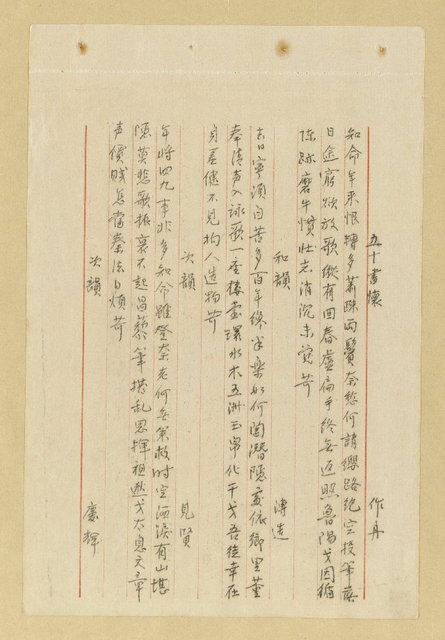 五十書懷
作丹
知命年來恨轉多蕭疎兩鬢奈愁何請纓路絕空投筆
日途窮欲放歌縱有回春盧扁手終無返照魯陽戈因循
陈跡磨牛慣壯志消沉未覺苛
和韻
溥造
去日寧須自苦多百年終半樂如何陶潛隱處依鄉里董
奉清声入詠歌一壺樓臺環水木五洲玉帛化干戈吾徒幸在
身差健不見拘人造物苛
次韻
見賢
年將四九事非多知命雖登奈老何無策救时空洒淚有山堪
隱莫悲歌振衰不起昌黎筆撥乱思揮祖逖戈太息文章
声價賤怎當秦法日煩苛
次韻
慶輝